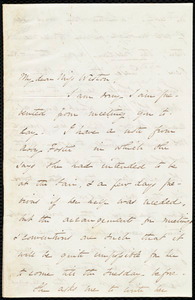 My dear Miss Weston,
I am sorry I am pre-
vented from meeting you to
day. I have a note from
Foster in which she
says she had intended to be
at the Fair, & a few days pre-
vious if her help was needed,
but the arrangements for meetings
& conventions are such that it
will be quite impossible for her
to come till the Tuesday before.
She asks me to write her